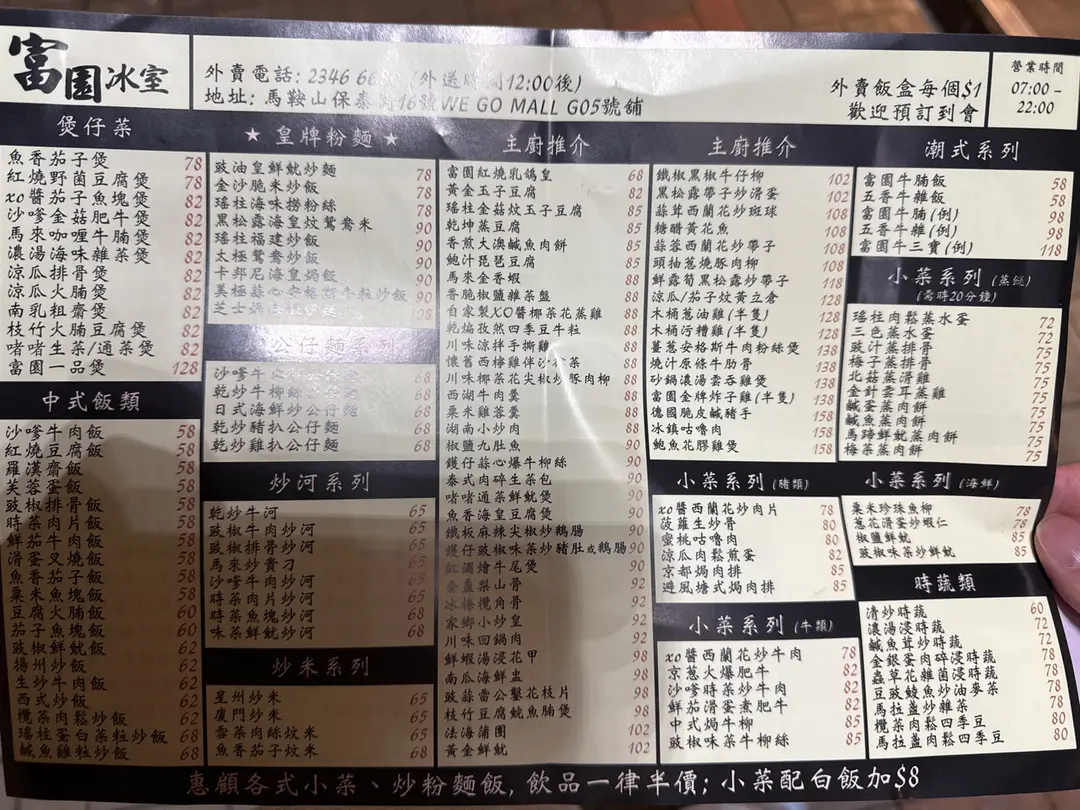 富園冰室
外賣電話: 2346 66 (外送時間12:00後)
地址: 馬鞍山保泰街16號WE GO MALL G05號舖
外賣飯盒每個$1
歡迎預訂到會
營業時間
07:00 -
22:00
煲仔菜
魚香茄子煲 78
紅燒野菌豆腐煲 78
xo醬茄子魚塊煲 82
沙嗲金菇肥牛煲 82
馬來咖喱牛腩煲 82
濃湯海味雜菜煲 82
涼瓜排骨煲 82
涼瓜火腩煲 82
南乳粗齋煲 82
枝竹火腩豆腐煲 82
啫啫生菜/通菜煲 82
富園一品煲 128
中式飯類
沙嗲牛肉飯 58
紅燒豆腐飯 58
羅漢齋飯 58
芙蓉蛋飯 58
豉椒排骨飯 58
時菜肉片飯 58
鮮茄牛肉飯 58
滑蛋叉燒飯 58
魚香茄子飯 58
粟米魚塊飯 58
豆腐火腩飯 60
茄子魚塊飯 60
豉椒鮮魷飯 60
揚州炒飯 60
生炒牛肉飯 60
西式炒飯 60
欖菜肉鬆炒飯 60
瑤柱蛋白菜粒炒飯 68
鹹魚雞粒炒飯 68
★ 皇牌粉麵 ★
豉油皇鮮魷炒麵 78
金沙脆米炒飯 78
瑤柱海味撈粉絲 78
黑松露海皇炆鴛鴦米 90
瑤柱福建炒飯 90
太極鴛鴦炒飯 90
卡邦尼海皇焗飯 90
美極蒜心安格斯牛粒炒飯 90
芝士 108
公仔麵系列
沙嗲牛 68
乾炒牛柳 68
日式海鮮炒公仔麵 68
乾炒豬扒公仔麵 68
乾炒雞扒公仔麵 68
炒河系列
乾炒牛河 65
豉椒牛肉炒河 65
豉椒排骨炒河 65
馬來炒貴刁 65
沙嗲牛肉炒河 65
時菜肉片炒河 65
時菜魚塊炒河 68
味菜鮮魷炒河 68
炒米系列
星州炒米 65
廈門炒米 65
雪菜肉絲炆米 65
魚香茄子炆米 68
主廚推介
富園紅燒乳鴿皇 68
黃金玉子豆腐 82
瑤柱金菇炆玉子豆腐 85
乾坤蒸豆腐 85
香煎大澳鹹魚肉餅 85
鮑汁琵琶豆腐 85
馬來金香蝦 88
香脆椒鹽雜菜盤 88
自家製XO醬椰菜花蒸雞 88
乾煸孜然四季豆牛粒 88
川味涼拌手撕雞 88
懷舊西檸雞伴沙律菜 88
川味椰菜花尖椒炒豚肉柳 88
西湖牛肉羹 88
粟米雞蓉羹 88
湖南小炒肉 88
椒鹽九肚魚 90
鑊仔蒜心爆牛柳絲 90
泰式肉碎生菜包 90
啫啫通菜鮮魷煲 90
魚香海皇豆腐煲 90
鐵板麻辣尖椒炒鵝腸 90
鑊仔豉椒味菜炒豬肚或鵝腸 90
紅酒燴牛尾煲 90
金盞梨山骨 92
冰梅欖角骨 92
家鄉小炒皇 92
川味回鍋肉 92
鮮蝦湯浸花甲 98
南瓜海鮮盅 98
豉蒜雷公鑿花枝片 98
枝竹豆腐魷魚腩煲 98
法海蒲團 102
黃金鮮魷 102
主廚推介
鐵椒黑椒牛仔柳 102
黑松露帶子炒滑蛋 102
蒜茸西蘭花炒斑球 108
糖醋黃花魚 108
蒜蓉西蘭花炒帶子 108
頭抽蔥燒豚肉柳 108
鮮露筍黑松露炒帶子 118
涼瓜/茄子炆黃立倉 128
木桶蔥油雞(半隻) 128
木桶污糟雞(半隻) 128
薑蔥安格斯牛肉粉絲煲 138
燒汁原條牛肋骨 138
砂鍋濃湯雲吞雞煲 138
富園金牌炸子雞(半隻) 138
德國脆皮鹹豬手 158
冰鎮咕嚕肉 158
鮑魚花膠雞煲 158
小菜系列 (豬類)
xo醬西蘭花炒肉片 78
菠蘿生炒骨 80
蜜桃咕嚕肉 80
涼瓜肉鬆煎蛋 82
京都焗肉排 85
避風塘式焗肉排 85
小菜系列 (牛類)
xo醬西蘭花炒牛肉 78
京蔥火爆肥牛 82
沙嗲時菜炒牛肉 82
鮮茄滑蛋煮肥牛 82
中式焗牛柳 85
豉椒味菜牛柳絲 85
潮式系列
富園牛腩飯 58
五香牛雜飯 58
富園牛腩(例) 98
五香牛雜(例) 98
富園牛三寶(例) 118
小菜系列 (蒸餸)
(需時20分鐘)
瑤柱肉鬆蒸水蛋 72
三色蒸水蛋 72
豉汁蒸排骨 75
梅子蒸排骨 75
北菇蒸滑雞 75
金針雲耳蒸雞 75
鹹蛋蒸肉餅 75
鹹魚蒸肉餅 75
馬蹄鮮魷蒸肉餅 75
梅菜蒸肉餅 75
小菜系列 (海鮮)
粟米珍珠魚柳 78
蔥花滑蛋炒蝦仁 78
椒鹽鮮魷 85
豉椒味菜炒鮮魷 85
時蔬類
清炒時蔬 60
濃湯浸時蔬 72
鹹魚茸炒時蔬 72
金銀蛋肉碎浸時蔬 78
蟲草花雜菌浸時蔬 78
豆豉鯪魚炒油麥菜 78
馬拉盞炒雜菜 78
欖菜肉鬆四季豆 80
馬拉盞肉鬆四季豆 80
惠顧各式小菜、炒粉麵飯, 飲品一律半價; 小菜配白飯加$8